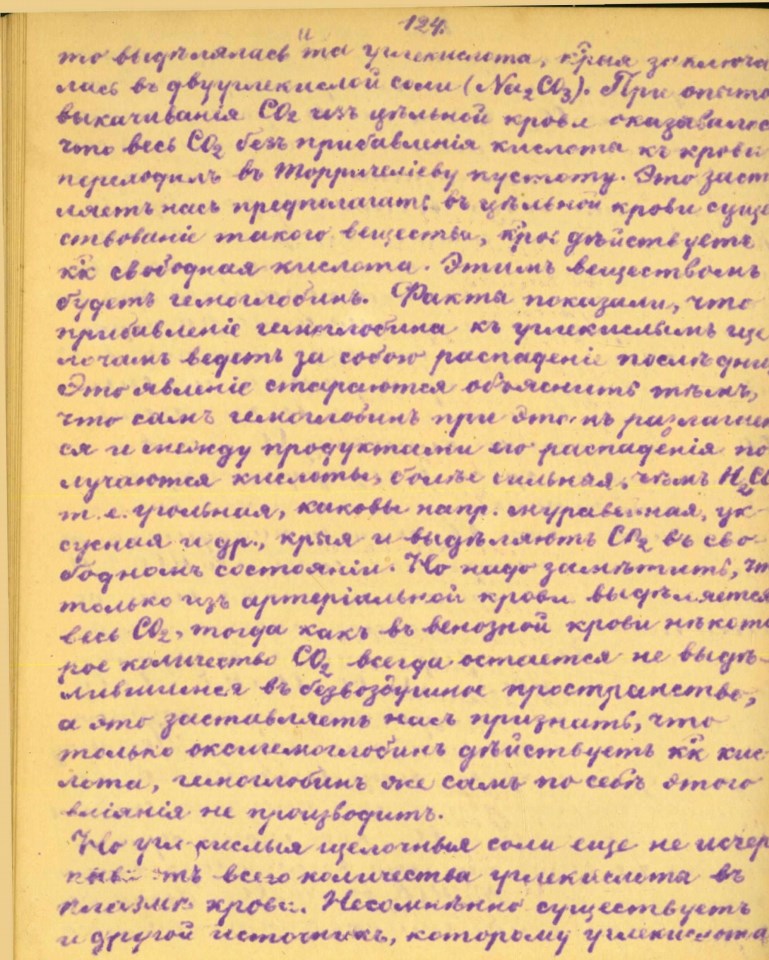 124.
то выдѣлялась и та углекислота, к̃рыя заключа
лась въ двууглекислой соли (Na₂CO₃). При опыт
выкачиванія CO₂ изъ цѣльной крови оказывалос
что весь CO₂ безъ прибавленія кислоты къ крови
переходилъ въ Торричеліеву пустоту. Это заст
ляетъ насъ предполагать въ цѣльной крови суще
ствованіе такого вещества, к̃рое дѣйствуетъ
к̃к свободная кислота. Этимъ веществомъ
будетъ гемоглобинъ. Факты показали, что
прибавленіе гемоглобина къ углекислымъ ще
лочамъ ведетъ за собою распаденіе послѣдни
Это явленіе стараются объяснить тѣмъ,
что самъ гемоглобинъ при этомъ разлагает
ся и между продуктами его распаденія по
лучаются кислоты, болѣе сильныя, чѣмъ H₂C
т. е. угольная, каковы напр. муравьиная, ук-
сусная и др., к̃рыя и выдѣляютъ CO₂ въ сво-
бодномъ состояніи. Но надо замѣтить, чт
только изъ артеріальной крови выдѣляется
весь CO₂, тогда какъ въ венозной крови нѣкото
рое количество CO₂ всегда остается не выдѣ-
лившимся въ безвоздушное пространство,
а это заставляетъ насъ признать, что
только оксигемоглобинъ дѣйствуетъ к̃к кис-
лота, гемоглобинъ же самъ по себѣ этого
вліянія не производитъ.
Но углекислыя щелочныя соли еще не исчер
пываютъ всего количества углекислоты въ
плазмѣ крови. Несомнѣнно существуетъ
и другой источникъ, которому углекислота